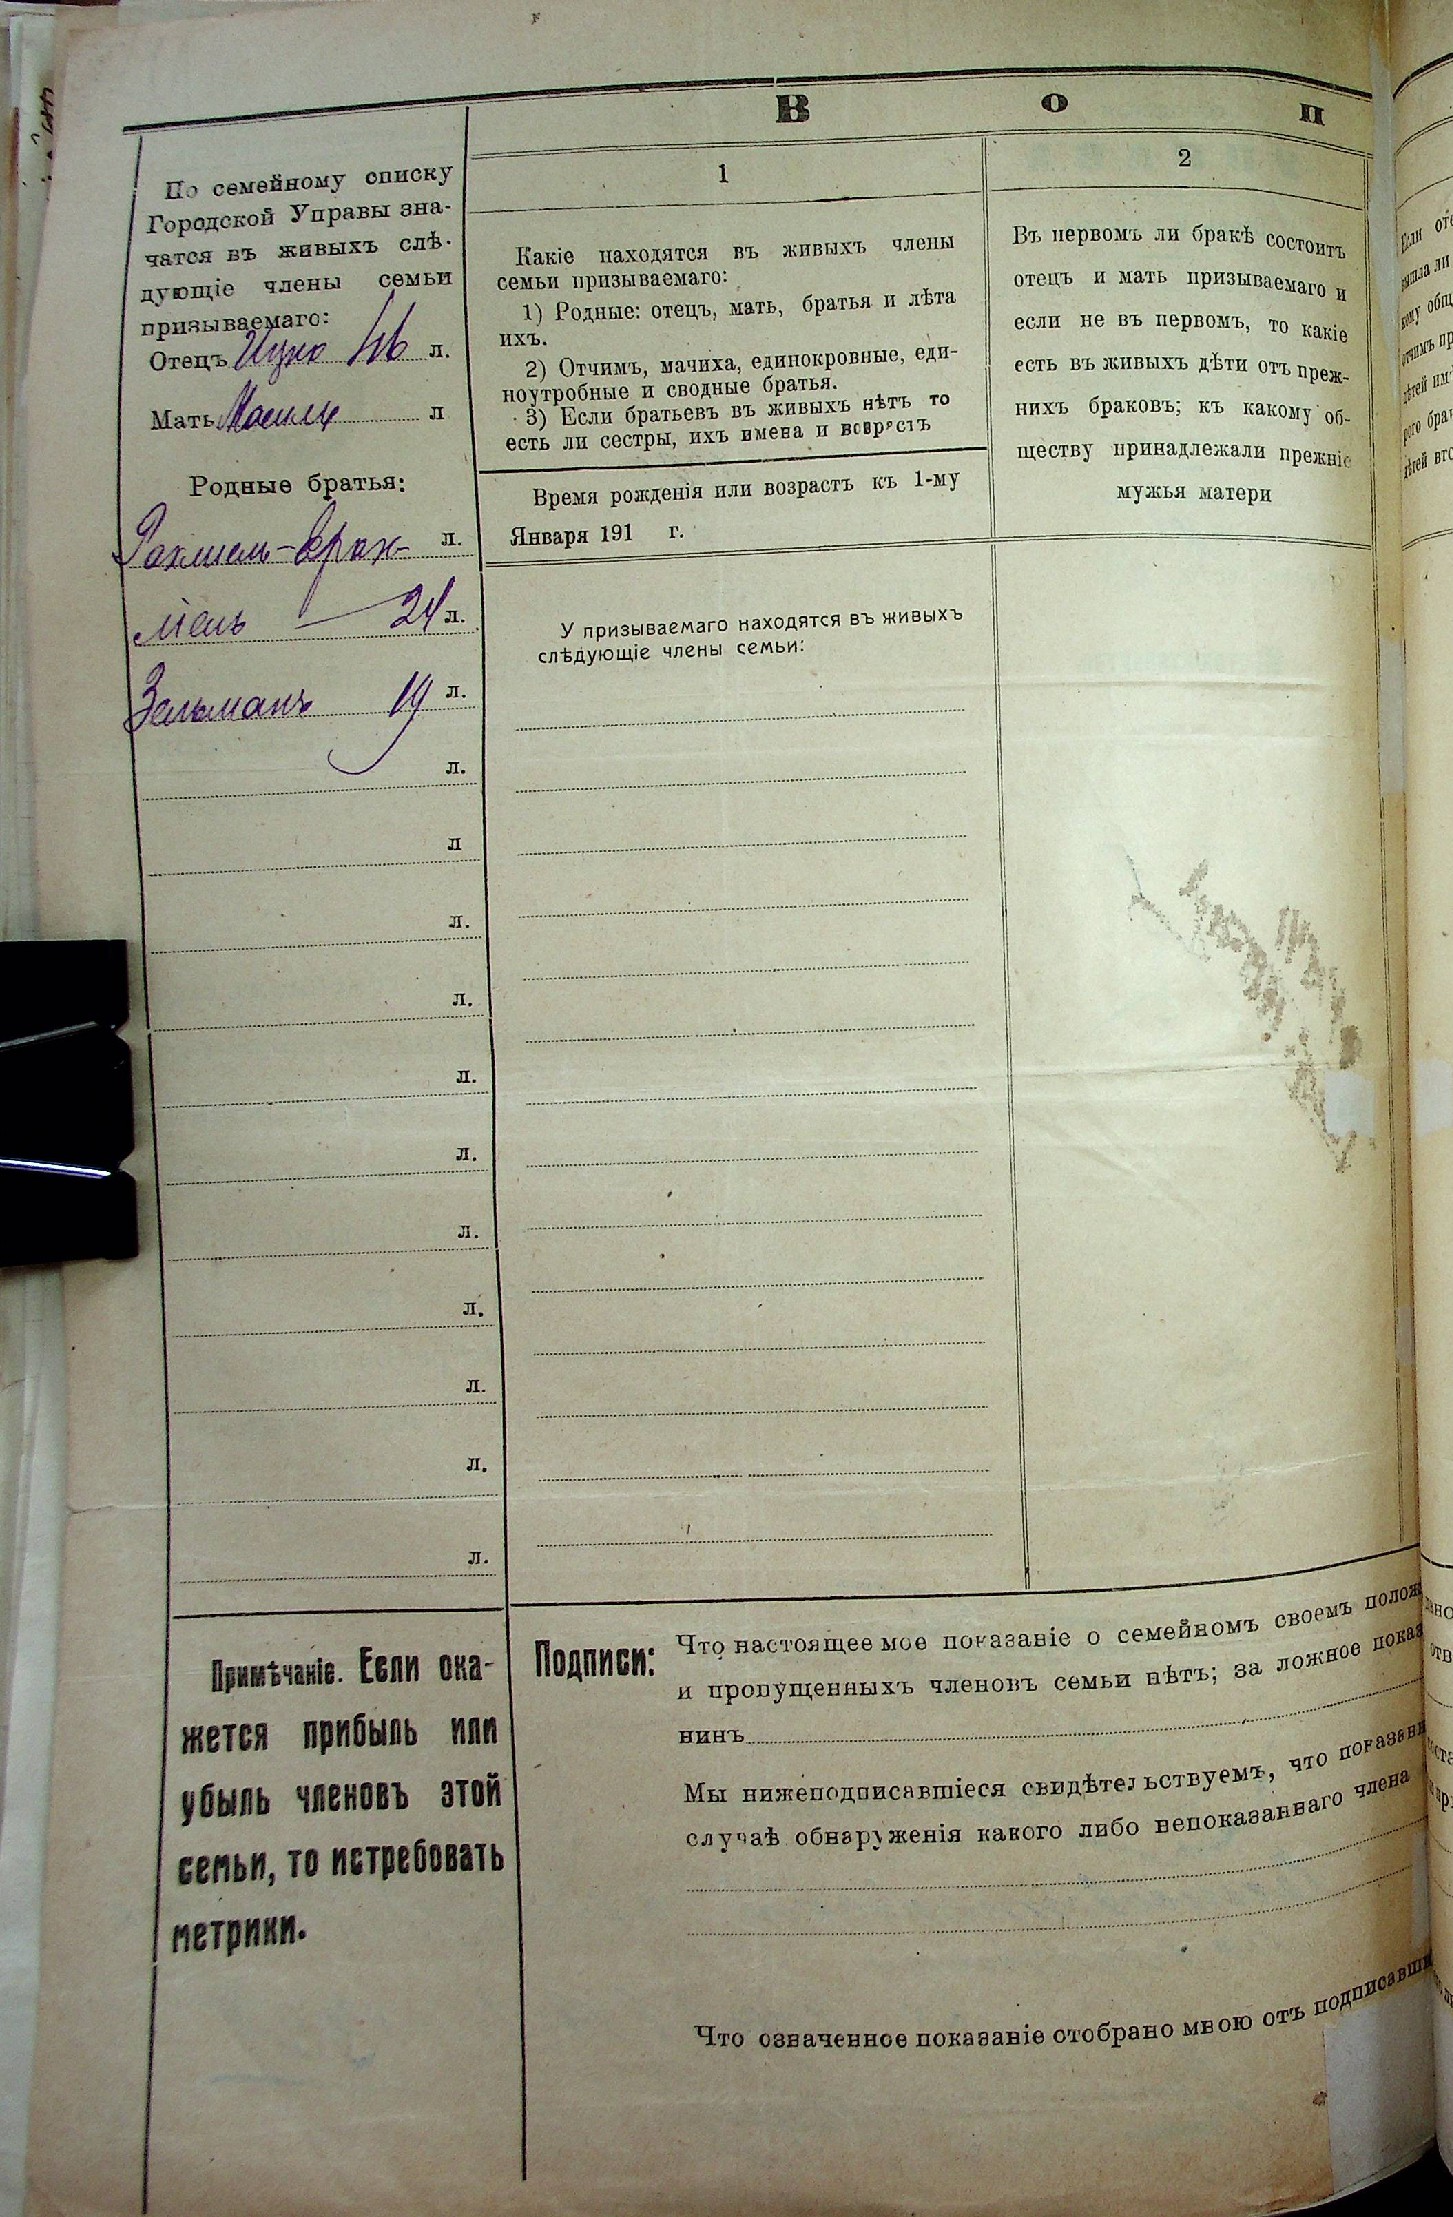 В о п
По семейному списку
Городской Управы зна-
чатся въ живыхъ слѣ-
дующіе члены семьи
призываемаго:
Отецъ Ицко 46 л.
Мать л
Родные братья:
Рахмиель-Ерах- л.
міель — 24 л.
Зельманъ 19 л.
л.
л
л.
л.
л.
л.
л.
л.
л.
л.
л.
Примѣчаніе. Если ока-
жется прибыль или
убыль членовъ этой
семьи, то истребовать
метрики.
1
Какіе находятся въ живыхъ члены
семьи призываемаго:
1) Родные: отецъ, мать, братья и лѣта
ихъ.
2) Отчимъ, мачиха, единокровные, еди-
ноутробные и сводные братья.
3) Если братьевъ въ живыхъ нѣтъ то
есть ли сестры, ихъ имена и возрастъ
Время рожденія или возрастъ къ 1-му
Января 191 г.
У призываемаго находятся въ живыхъ
слѣдующіе члены семьи:
2
Въ первомъ ли бракѣ состоитъ
отецъ и мать призываемаго и
если не въ первомъ, то какіе
есть въ живыхъ дѣти отъ преж-
нихъ браковъ; къ какому об-
ществу принадлежали прежніе
мужья матери
Подписи:
Что настоящее мое показаніе о семейномъ своемъ полож
и пропущенныхъ членовъ семьи нѣтъ; за ложное показ
нинъ
Мы нижеподписавшіеся свидѣтельствуемъ, что показані
случаѣ обнаруженія какого либо непоказаннаго члена
Что означенное показаніе отобрано мною отъ подписавши